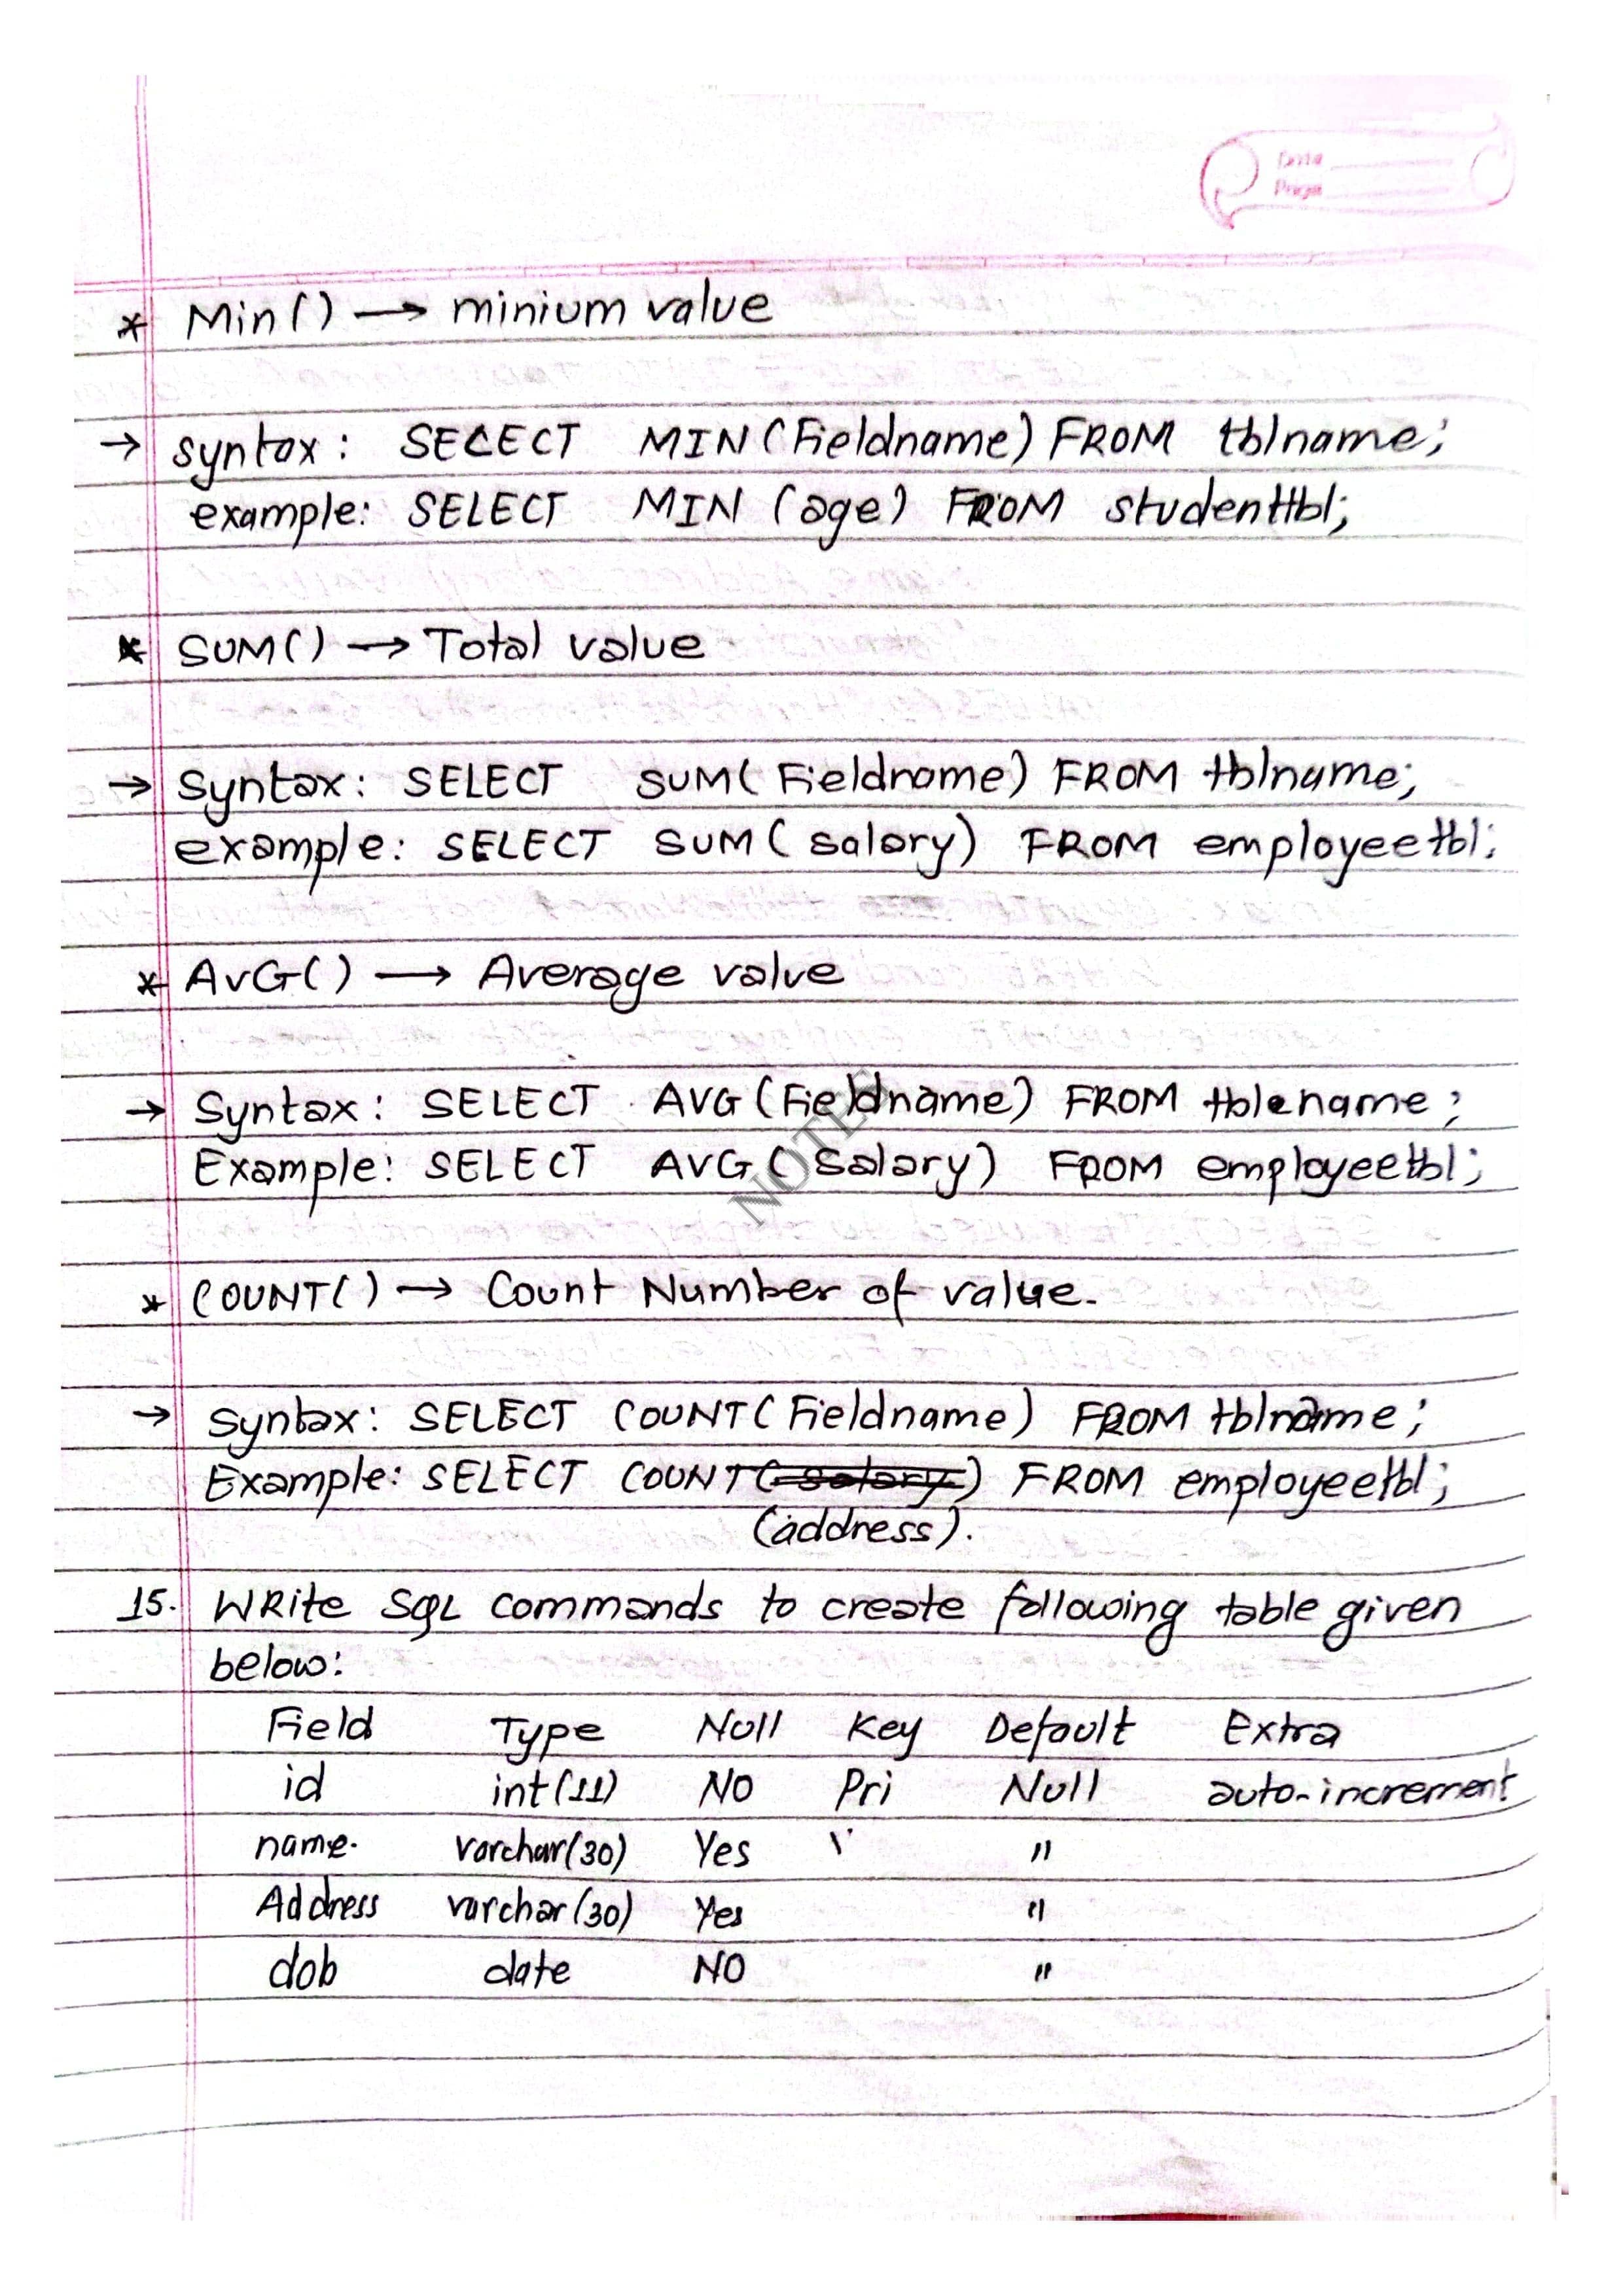 Date
Page
* Min() → minium value
→ syntax: SELECT MIN(Fieldname) FROM tblname;
example: SELECT MIN (age) FROM studenttbl;
* SUM() → Total value
→ Syntax: SELECT SUM(Fieldname) FROM tblname;
example: SELECT SUM(salary) FROM employeetbl;
* AVG() → Average value
→ Syntax: SELECT AVG(Fieldname) FROM tblename;
Example: SELECT AVG(Salary) FROM employeetbl;
NOTES
* COUNT() → Count Number of value.
→ Syntax: SELECT COUNT(Fieldname) FROM tblname;
Example: SELECT COUNT(salary) FROM employeetbl;
(address).
15. Write SQL commands to create following table given
below:
Field Type Null Key Default Extra
id int(11) NO Pri Null auto-increment
name. varchar(30) Yes "
Address varchar(30) Yes "
dob date NO "